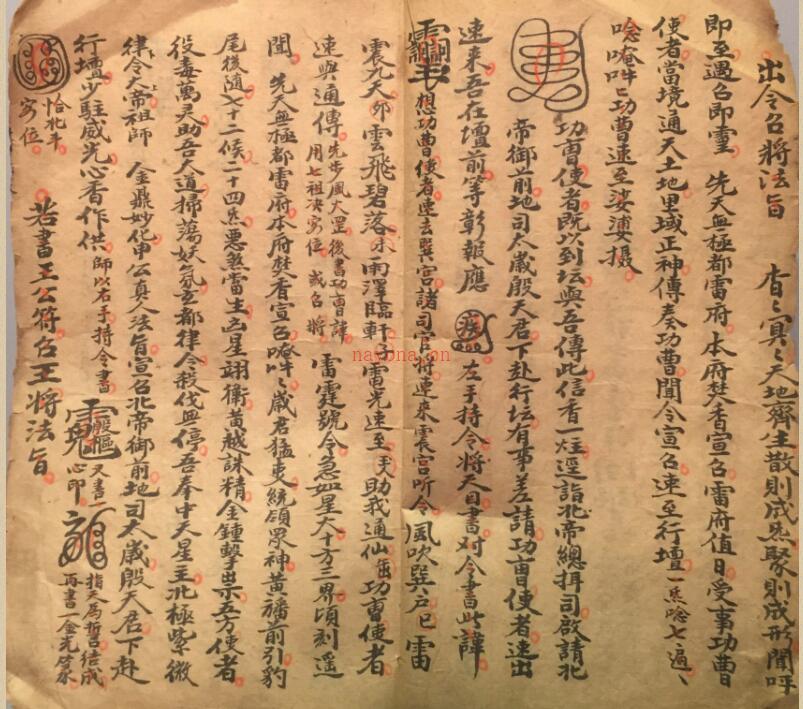 出令召將法旨　杳々冥々天地齊生散則成炁聚則成形聞呼
即至遇召即靈　先天無極都雷府本府焚香宣召雷府值日受事功曹
使者當境通天土地里域正神傳奏功曹聞令宣召速至行壇一炁唸七遍、
唸唵吽匕功曹速至娑婆攝
功曹使者既以到坛與吾傳此信香一炷逕詣北帝總拜司啟請北
帝御前地司太歲殷天君下赴行坛有事差請功曹使者速出
速來吾在壇前等彰報應　左手持令將天目書对令書此諱
想功曹使者速去巽宮諸司官將速來震宮听令　風吹巽戶巳　雷
震九天卯雲飛碧落　雨澤臨軒　雷光速至　助我通仙　功曹使者
速與通傳　先步風火罡後書功曹諱用七祖决寄位　或召將　雷霆號令急如星火十方三界頃刻遥
聞　先天無極都雷府本府焚香宣召唵吽々歲君猛吏統領眾神黃旛前引豹
尾後随七十二候二十四炁悪煞當生凶星翊衛黃越誅精金鍾擊祟五方使者
役毒萬灵助吾人道掃蕩妖氛玄都律令殺伐無停吾奉中天星主北極紫微
律令大帝祖師　金鼎妙化申公真人法旨宣召北帝御前地司太歲殷天君下赴
行壇少駐威光心香作供　師以右手持令書　又書一心印　指天為誓结成再書一金光篆
恰北斗寄位　若書王公符召王將法旨
naybna.com